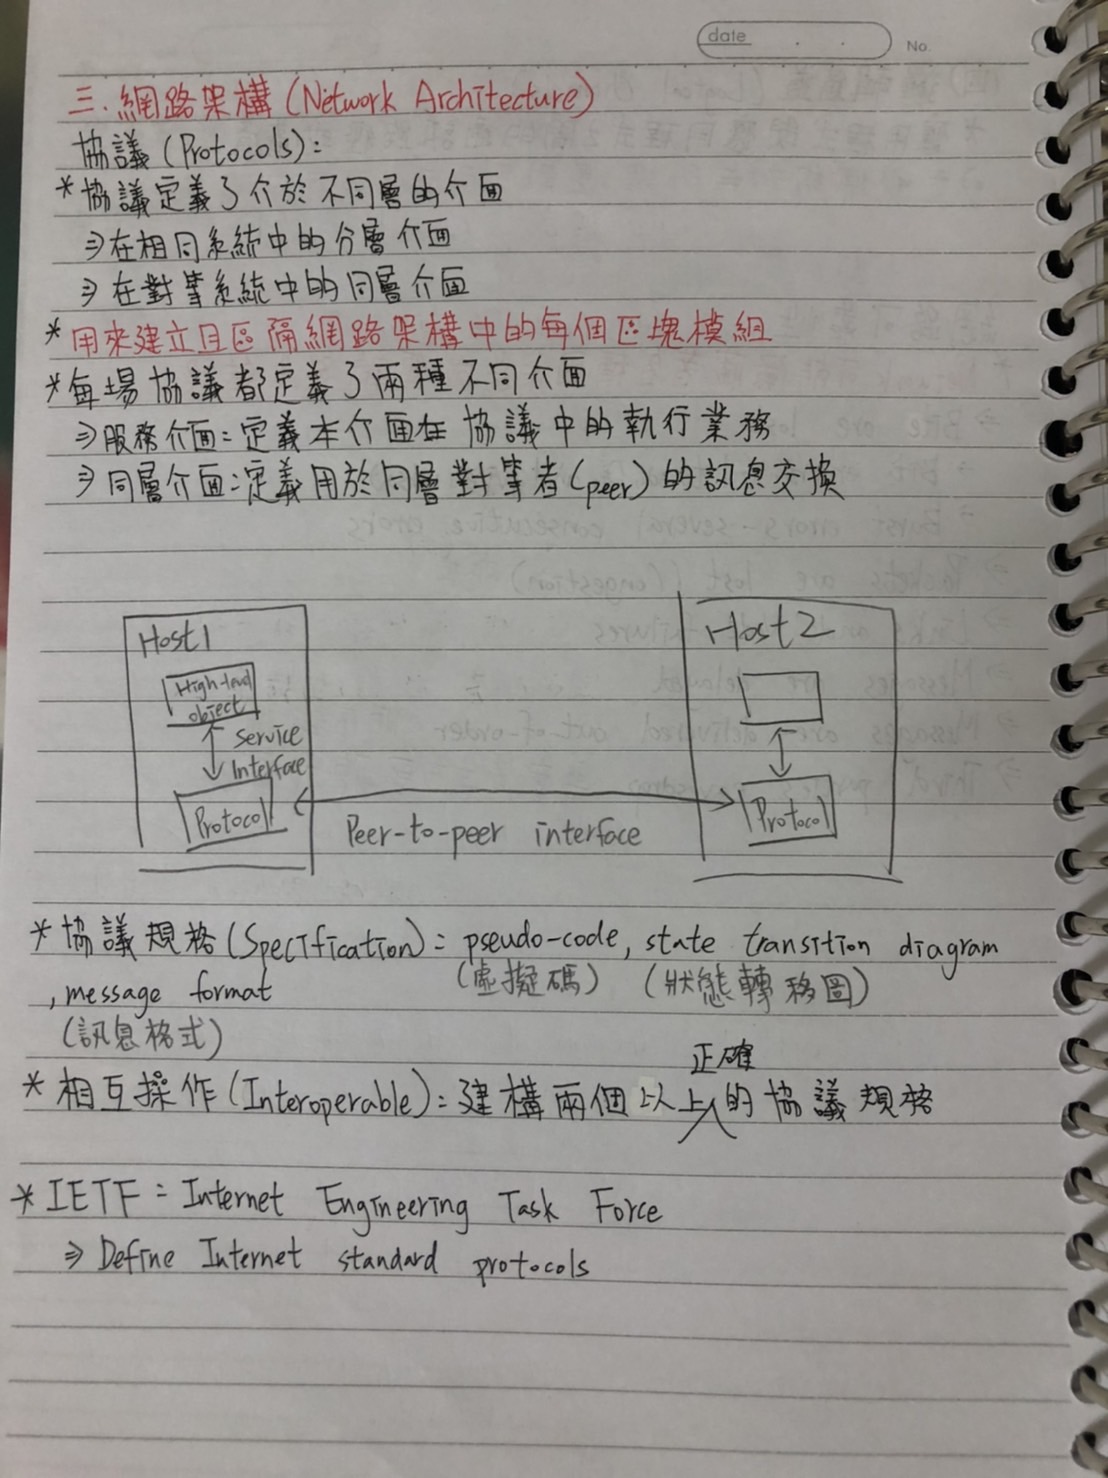 date
No.
三.網路架構(Network Architecture)
協議(Protocols):
*協議定義了介於不同層的介面
⇒在相同系統中的分層介面
⇒在對等系統中的同層介面
*用來建立且區隔網路架構中的每個區塊模組
*每場協議都定義了兩種不同介面
⇒服務介面:定義本介面在協議中的執行業務
⇒同層介面:定義用於同層對等者(peer)的訊息交換
Host1
Host2
High-level
object
service
Interface
Protocol
Protocol
Peer-to-peer interface
*協議規格(Specification):pseudo-code, state transition diagram
(虛擬碼) (狀態轉移圖)
, message format
(訊息格式)
正確
*相互操作(Interoperable):建構兩個以上的協議規格
*IETF:Internet Engineering Task Force
⇒Define Internet standard protocols